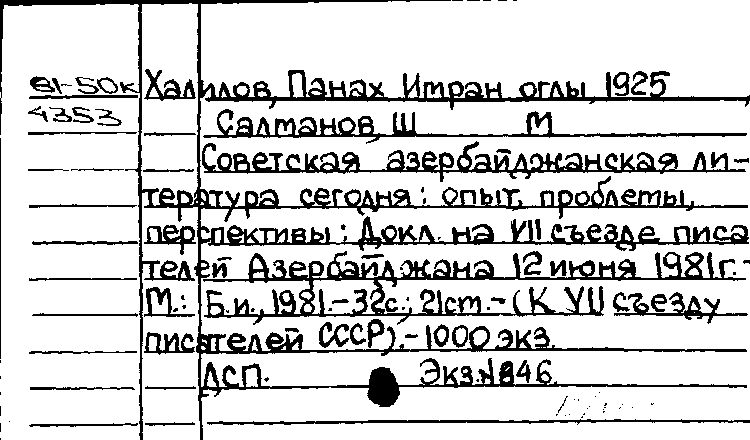 81-50к Халилов, Панах Имран оглы, 1925
4353 Салманов, Ш М
Советская азербайджанская ли-
тература сегодня: опыт, проблемы,
перспективы: Докл. на VII съезде писа
телей Азербайджана 12 июня 1981г.-
М.: Б.и., 1981.-32с.; 21см.-(К VII съезду
писателей СССР).-1000 экз.
ДСП. Экз.N846.